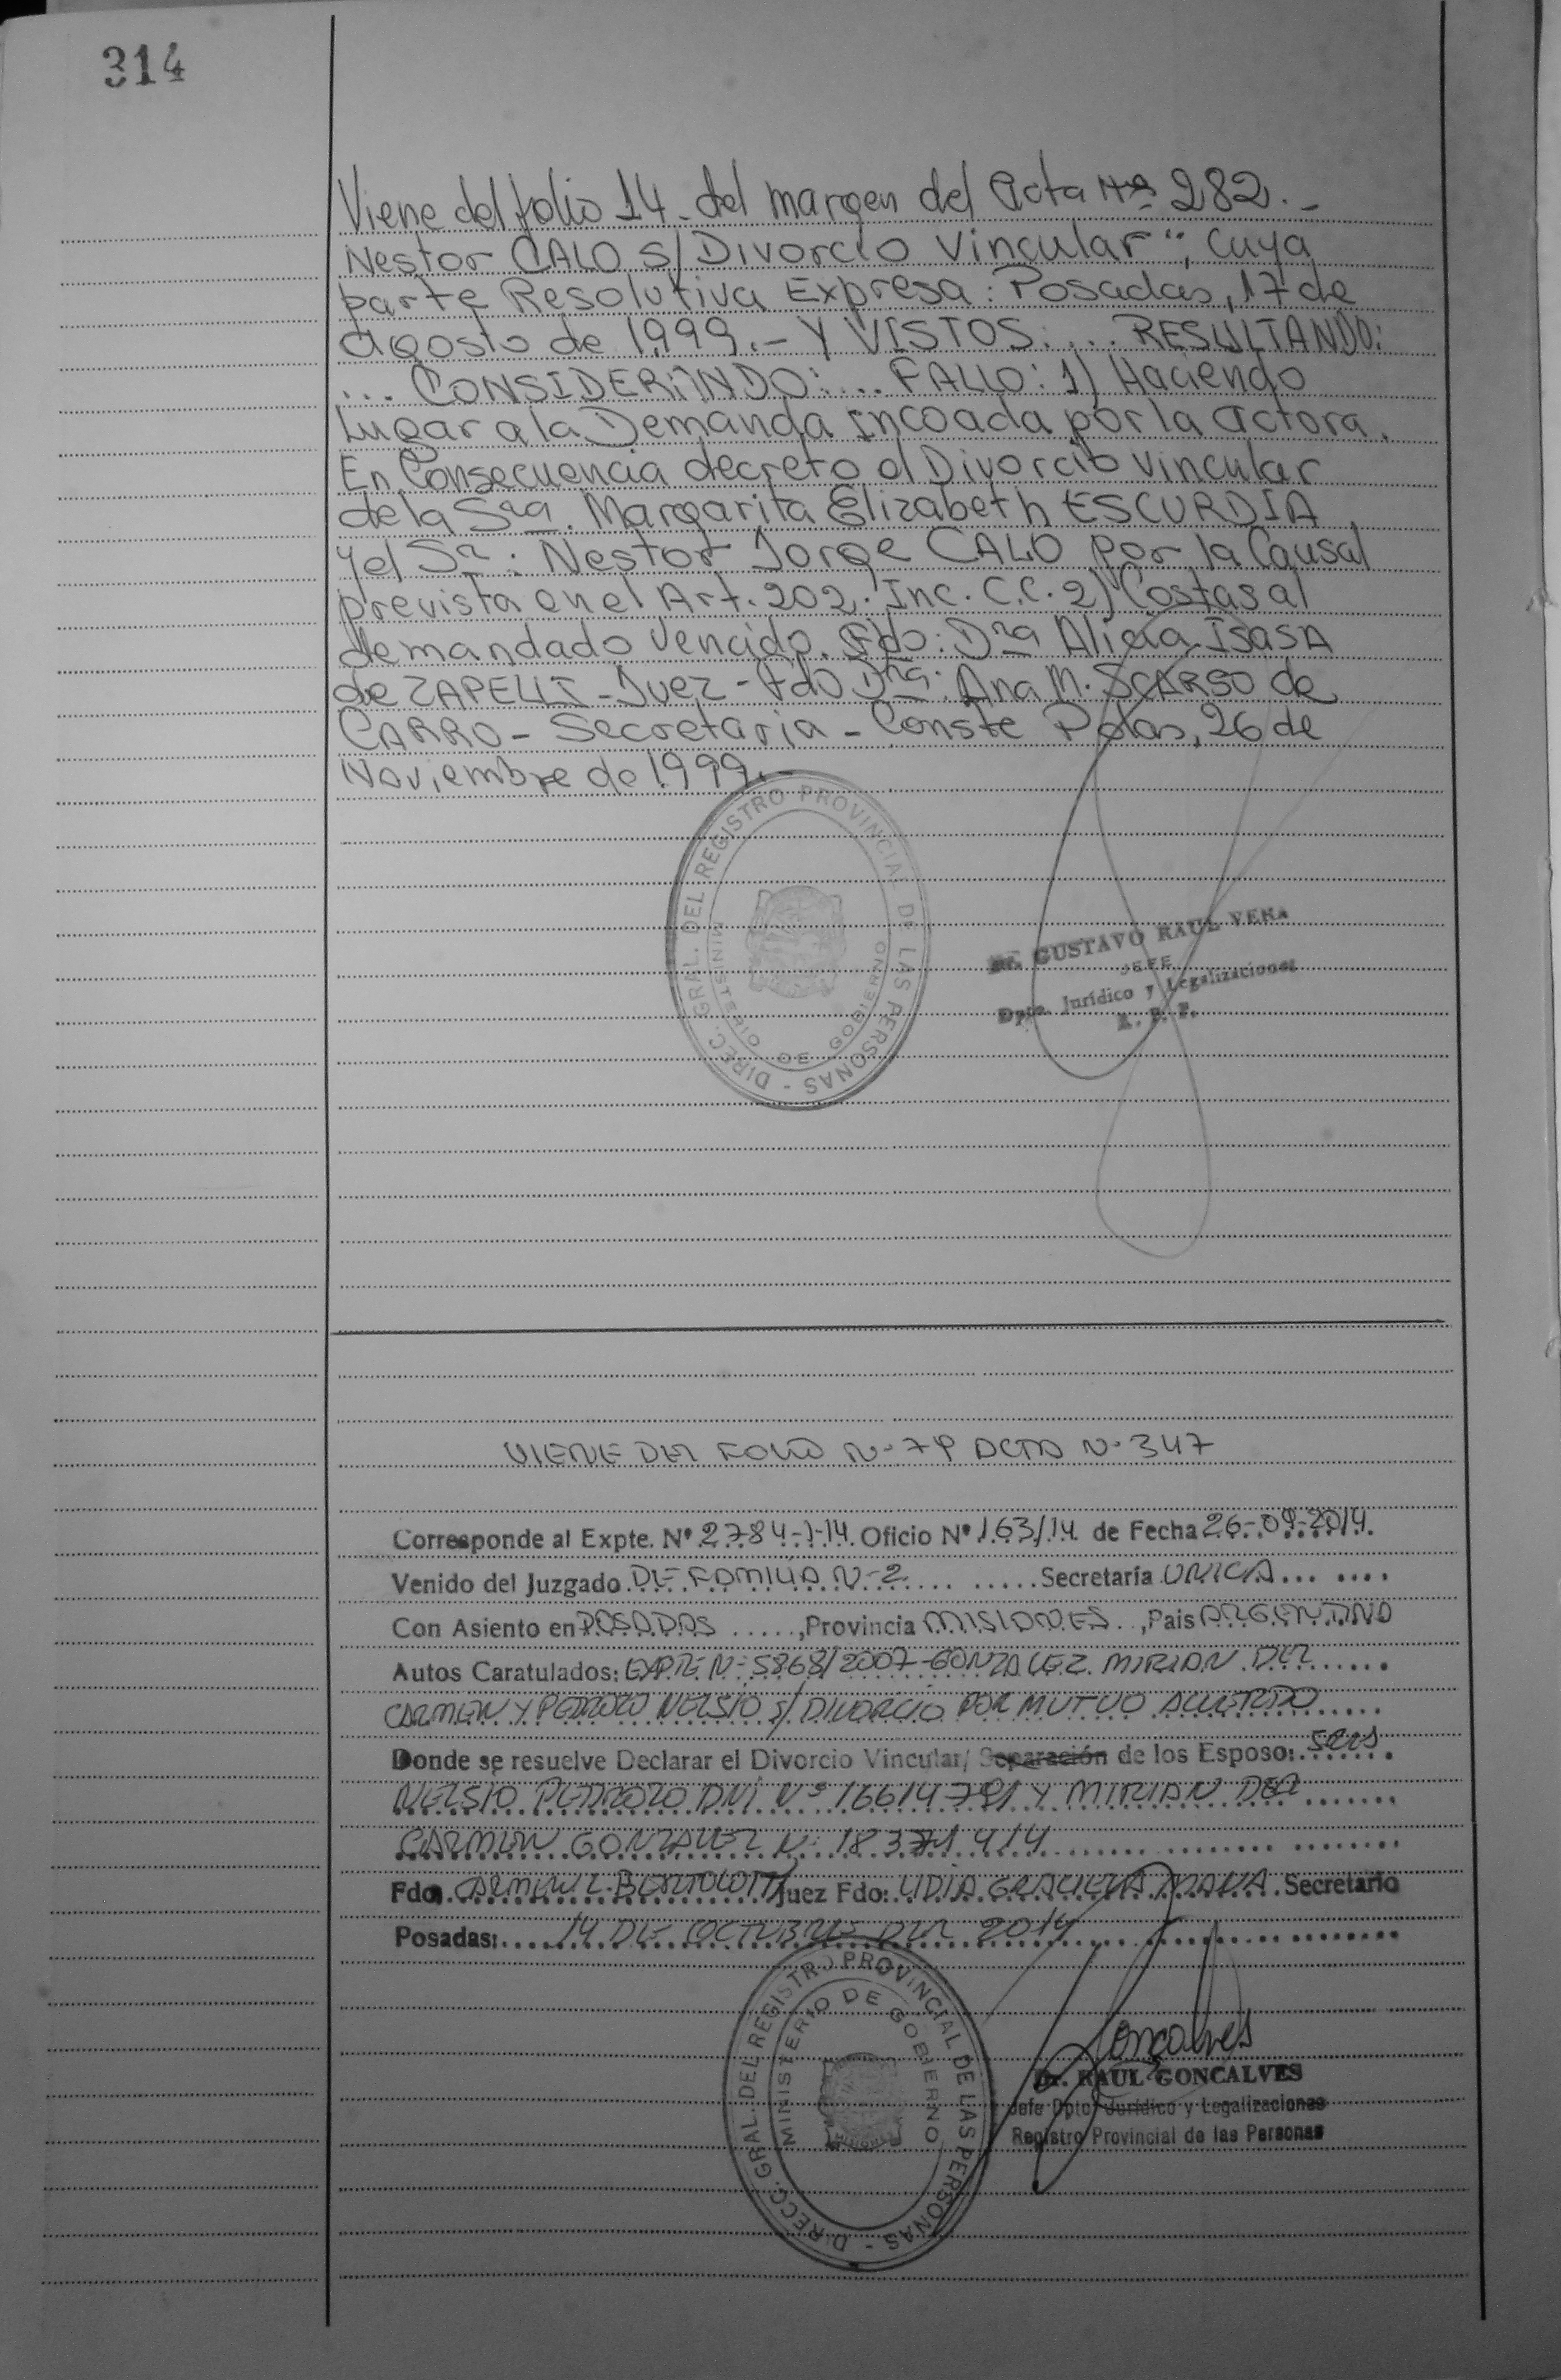 314
Viene del folio 14. del margen del Acta Nº 282.-
Nestor CALO s/Divorcio Vincular"; cuya
parte Resolutiva Expresa: Posadas, 17 de
agosto de 1999.- Y VISTOS: ... RESULTANDO:
... CONSIDERANDO: ... FALLO: 1) Haciendo
Lugar a la Demanda incoada por la actora.
En Consecuencia decreto el Divorcio vincular
de la Sra. Margarita Elizabeth ESCURDIA
y el Sr: Nestor Jorge CALO por la Causal
prevista en el Art. 202. Inc. C.C. 2) Costas al
demandado vencido. Fdo: Dra Alicia Isasa
de ZAPELLI - Juez - Fdo Dra: Ana M. SCARSO de
CARRO - Secretaria - Conste Pdas, 26 de
Noviembre de 1999.-
DIREC. GRAL. DEL REGISTRO PROVINCIAL DE LAS PERSONAS -
MINISTERIO DE GOBIERNO
Dr. GUSTAVO RAUL VERA
JEFE
Dpto. Jurídico y Legalizaciones
R. P. P.
VIENE DEL FOLIO Nº 79 ACTA Nº 347
Corresponde al Expte. Nº 2784-1-14 Oficio Nº 163/14 de Fecha 26-09-2014.
Venido del Juzgado DE FAMILIA Nº 2 Secretaría UNICA
Con Asiento en POSADAS, Provincia MISIONES, Pais ARGENTINA
Autos Caratulados: EXPTE Nº 5868/2007 - GONZALEZ MIRIAN DEL
CARMEN Y PEDROZO NELSIO S/ DIVORCIO POR MUTUO ACUERDO
Donde se resuelve Declarar el Divorcio Vincular/ Separación de los Esposo: SRES
NELSIO PEDROZO DNI Nº 16614791 Y MIRIAN DEL
CARMEN GONZALEZ Nº 18371414
Fdo. CARMEN L. BERTOLOTTI Juez Fdo: LIDIA GRACIELA MANA Secretario
Posadas: 14 DE OCTUBRE DEL 2014
DIRECC. GRAL. DEL REGISTRO PROVINCIAL DE LAS PERSONAS -
MINISTERIO DE GOBIERNO
Gonçalves
Dr. RAUL GONCALVES
Jefe Dpto. Jurídico y Legalizaciones
Registro Provincial de las Personas